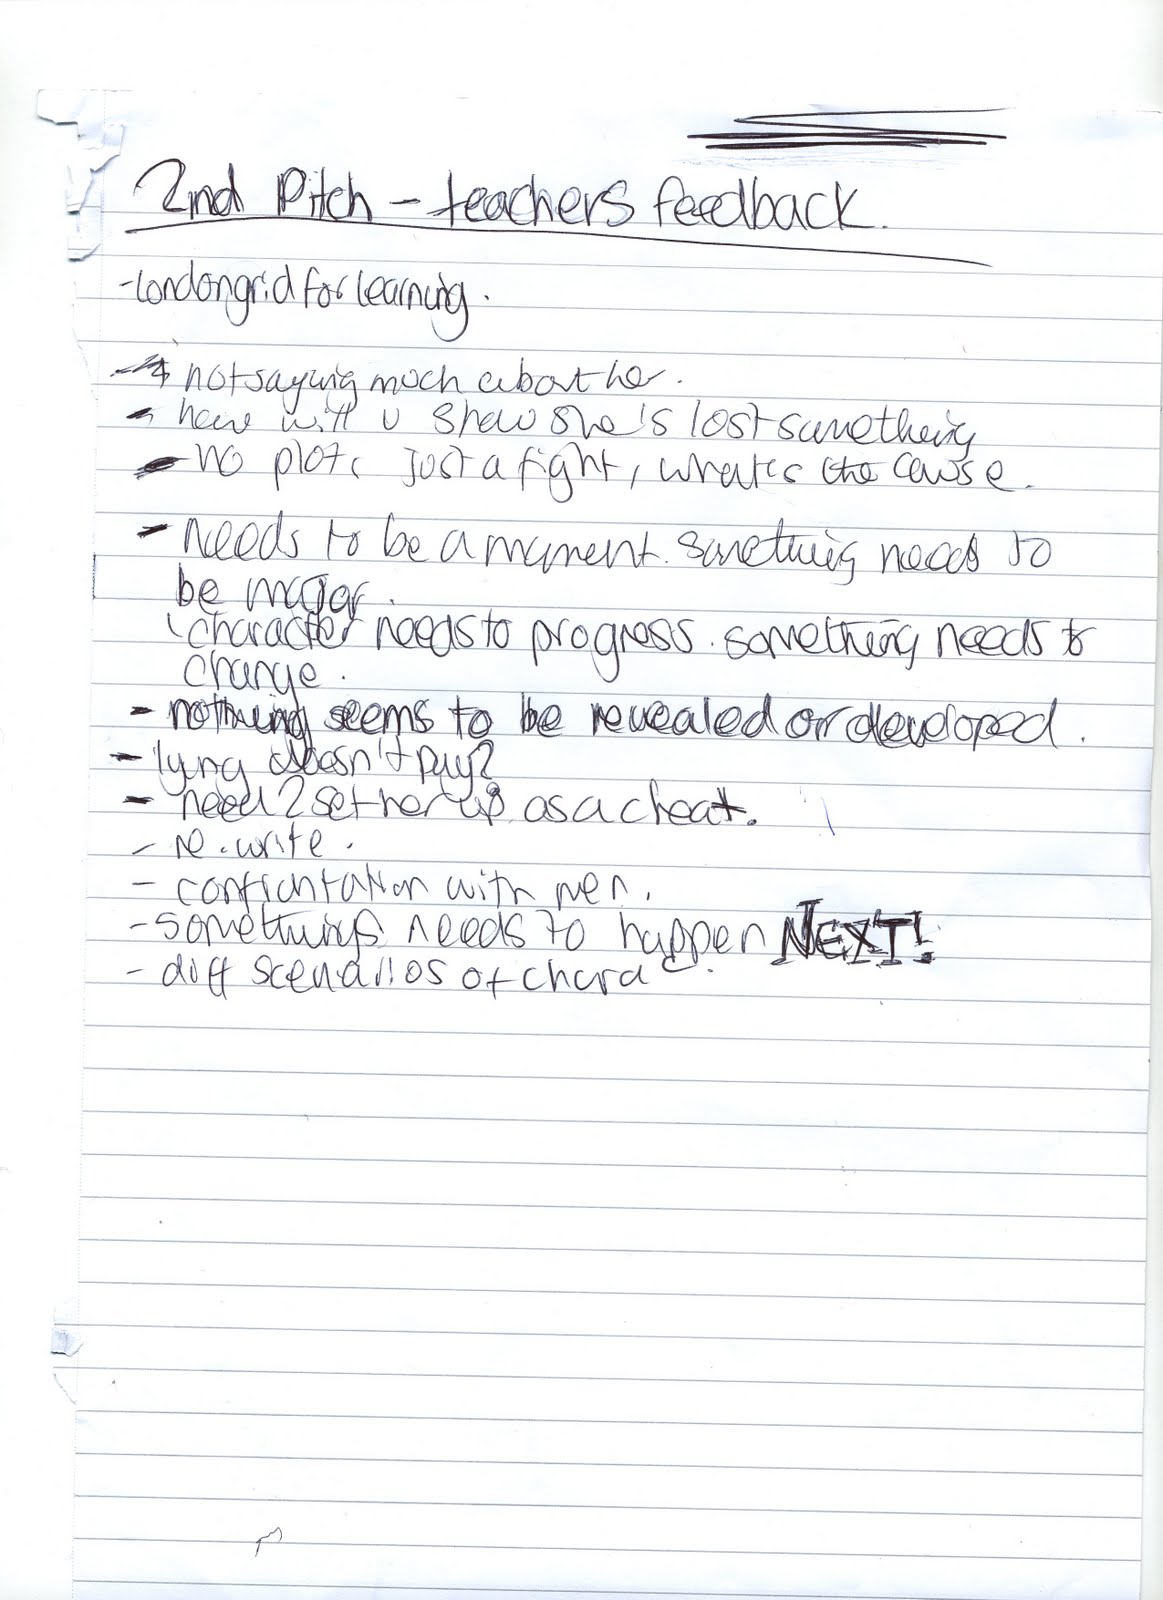 2nd Pitch - teachers feedback.
- londongrid for learning.
- not saying much about her.
- how will u show she's lost something
- no plot, just a fight, whats the cause.
- needs to be a moment. something needs to
be major.
character needs to progress. something needs to
change.
- nothing seems to be revealed or developed.
- lying doesn't pay?
- need 2 set her up as a cheat.
- re-write.
- confrontation with men.
- somethings needs to happen NEXT!
- diff scenarios of charac.